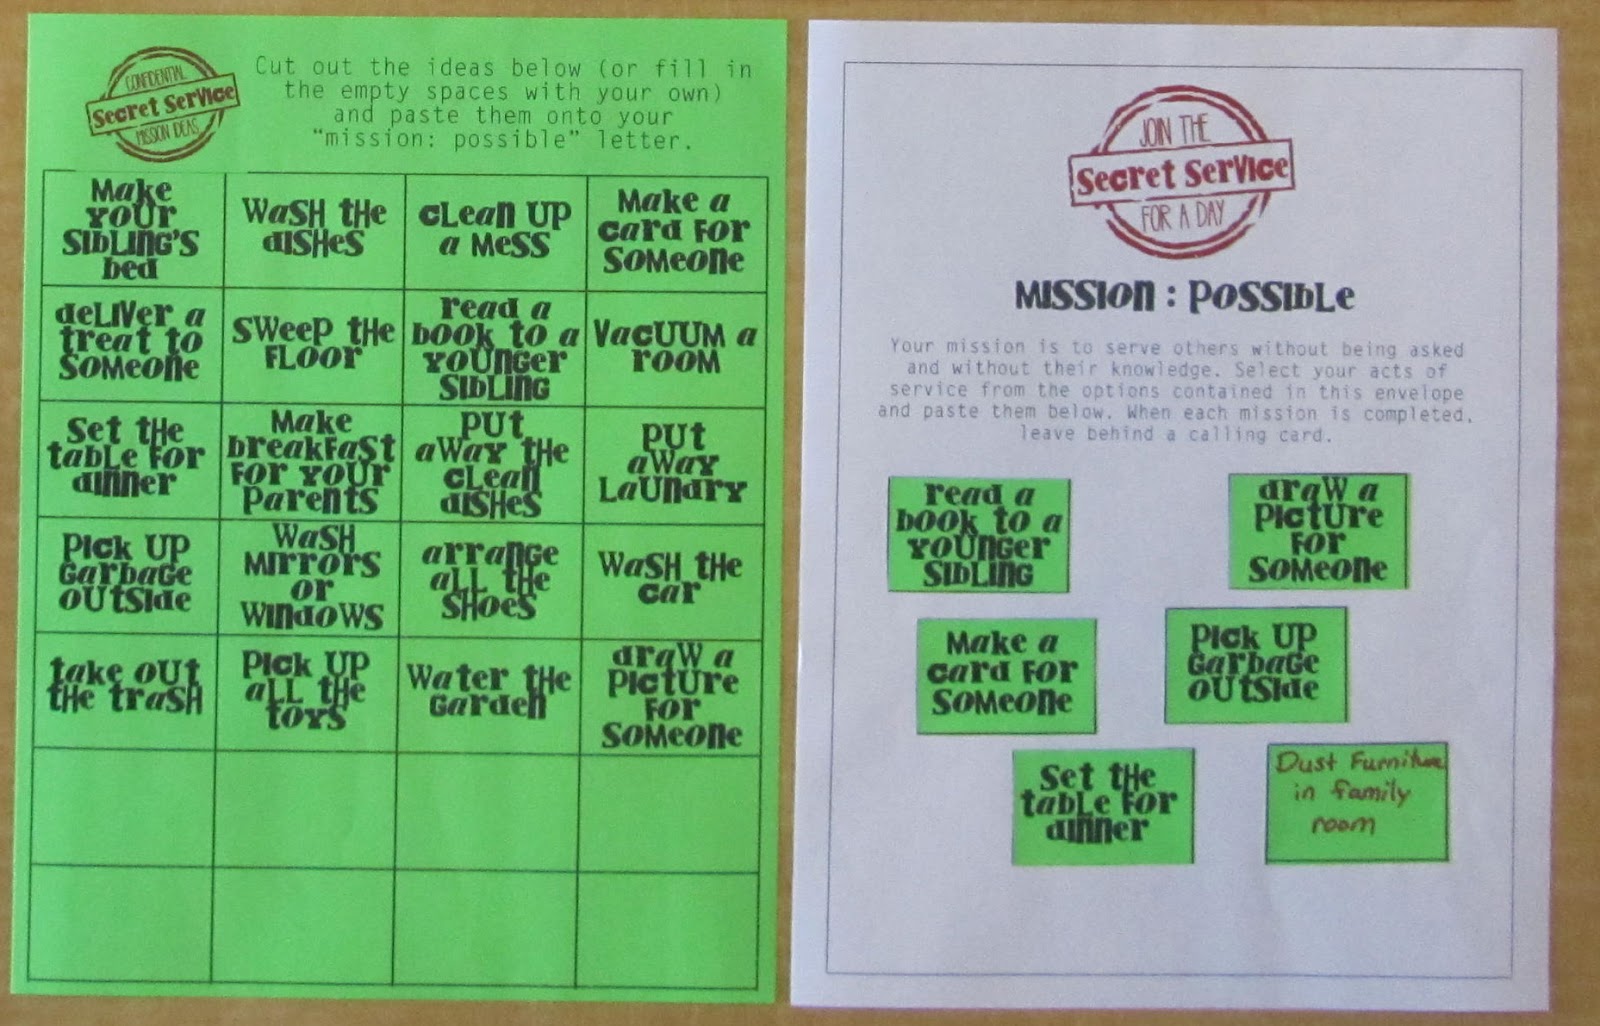 CONFIDENTIAL
Secret Service
MISSION IDEAS
Cut out the ideas below (or fill in
the empty spaces with your own)
and paste them onto your
“mission: possible” letter.
Make
your
sibling's
bed
Wash the
dishes
Clean up
a mess
Make a
card for
someone
deliver a
treat to
someone
Sweep the
floor
read a
book to a
younger
sibling
Vacuum a
room
Set the
table for
dinner
Make
breakfast
for your
parents
put
away the
clean
dishes
put
away
laundry
Pick up
garbage
outside
Wash
mirrors
or
windows
arrange
all the
shoes
Wash the
car
take out
the trash
Pick up
all the
toys
Water the
garden
draw a
picture
for
someone
JOIN THE
Secret Service
FOR A DAY
Mission : Possible
Your mission is to serve others without being asked
and without their knowledge. Select your acts of
service from the options contained in this envelope
and paste them below. When each mission is completed,
leave behind a calling card.
read a
book to a
younger
sibling
draw a
picture
for
someone
Make a
card for
someone
Pick up
garbage
outside
Set the
table for
dinner
Dust Furniture
in family
room